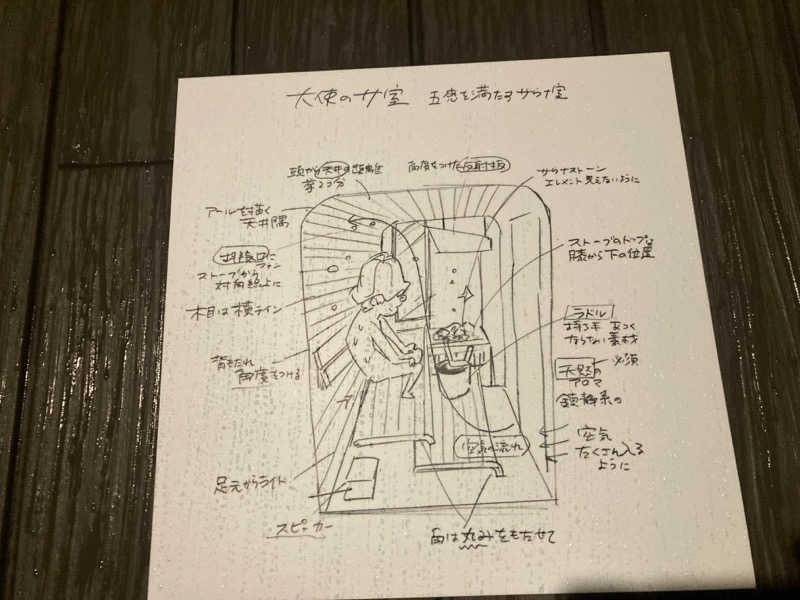 大使のサ室 五感を満たすサウナ室
頭から天井の距離を
拳2コ分
角度をつけた反射板
サウナストーン
エレメント見えないように
アールを描く
天井隅
排気口に
ファン
ストーブから
対角線上に
ストーブのトップは
膝から下の位置
木目は横ライン
ラドル
持つ手 あつく
ならない素材
背もたれ
角度をつける
天然の
アロマ
必須
鎮静系の
空気の流れ
空気
たくさん入る
ように
足元からライト
スピーカー
角は丸みをもたせて